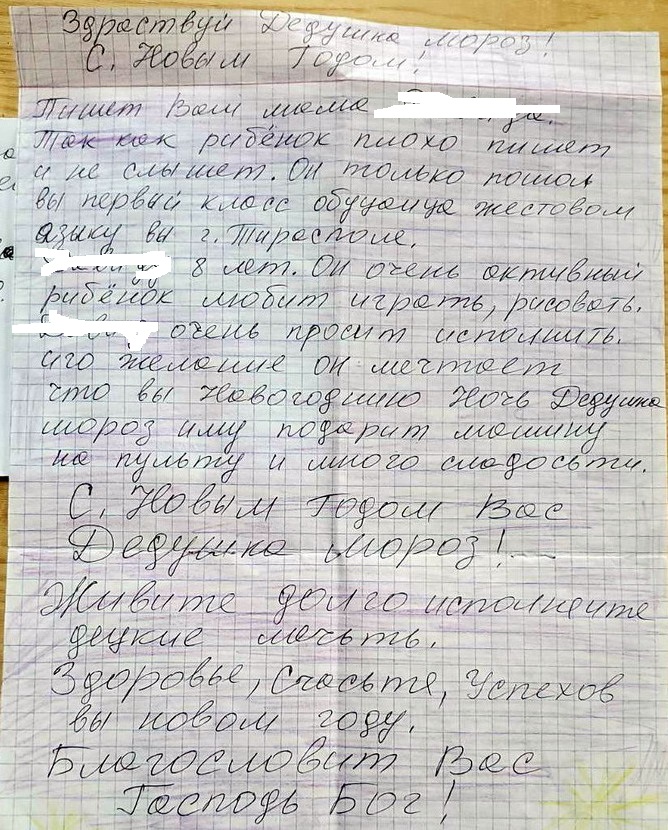 Здраствуй Дедушка мороз!
С. Новым Годом!
Пишет Вам мама
Так как рибёнок плохо пишет
и не слышет. Он только пошол
вы первый класс обуцаица жестовом
языку вы г. Тирасполе.
8 лет. Он очень активный
рибёнок любит играть, рисовать.
очень просит исполнить.
иго желание он мечтает
что вы Новогоднию Ночь Дедушка
мороз иму подарит машину
на пульту и много сладосьти.
С. Новым Годом Вас
Дедушка мороз!
Живите долго исполнеите
децкие мечьть.
Здоровье, Счасьте, Успехов
вы новом году.
Благословит Вас
Гасподь Бог!